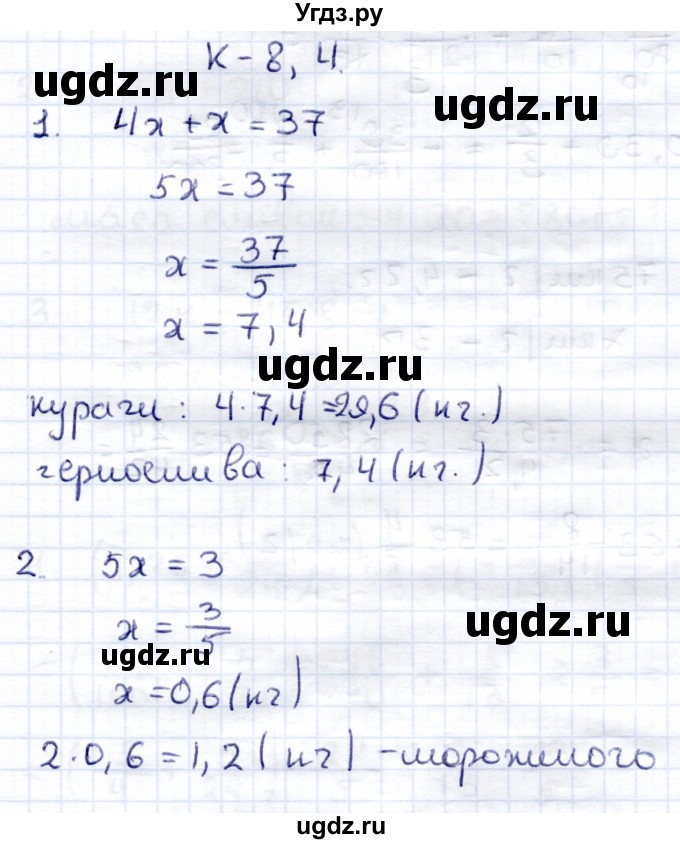 Угдз.ру
К-8, 4.
ugdz.ru
ugdz.ru
1. 4x + x = 37
5x = 37
x = 37/5
x = 7,4
кураги: 4·7,4=29,6 (кг.)
чернослива: 7,4 (кг.)
2. 5x = 3
x = 3/5
ugdz.ru
ugdz.ru
x = 0,6 (кг)
2·0,6 = 1,2 (кг) - морожимого
ugdz.ru